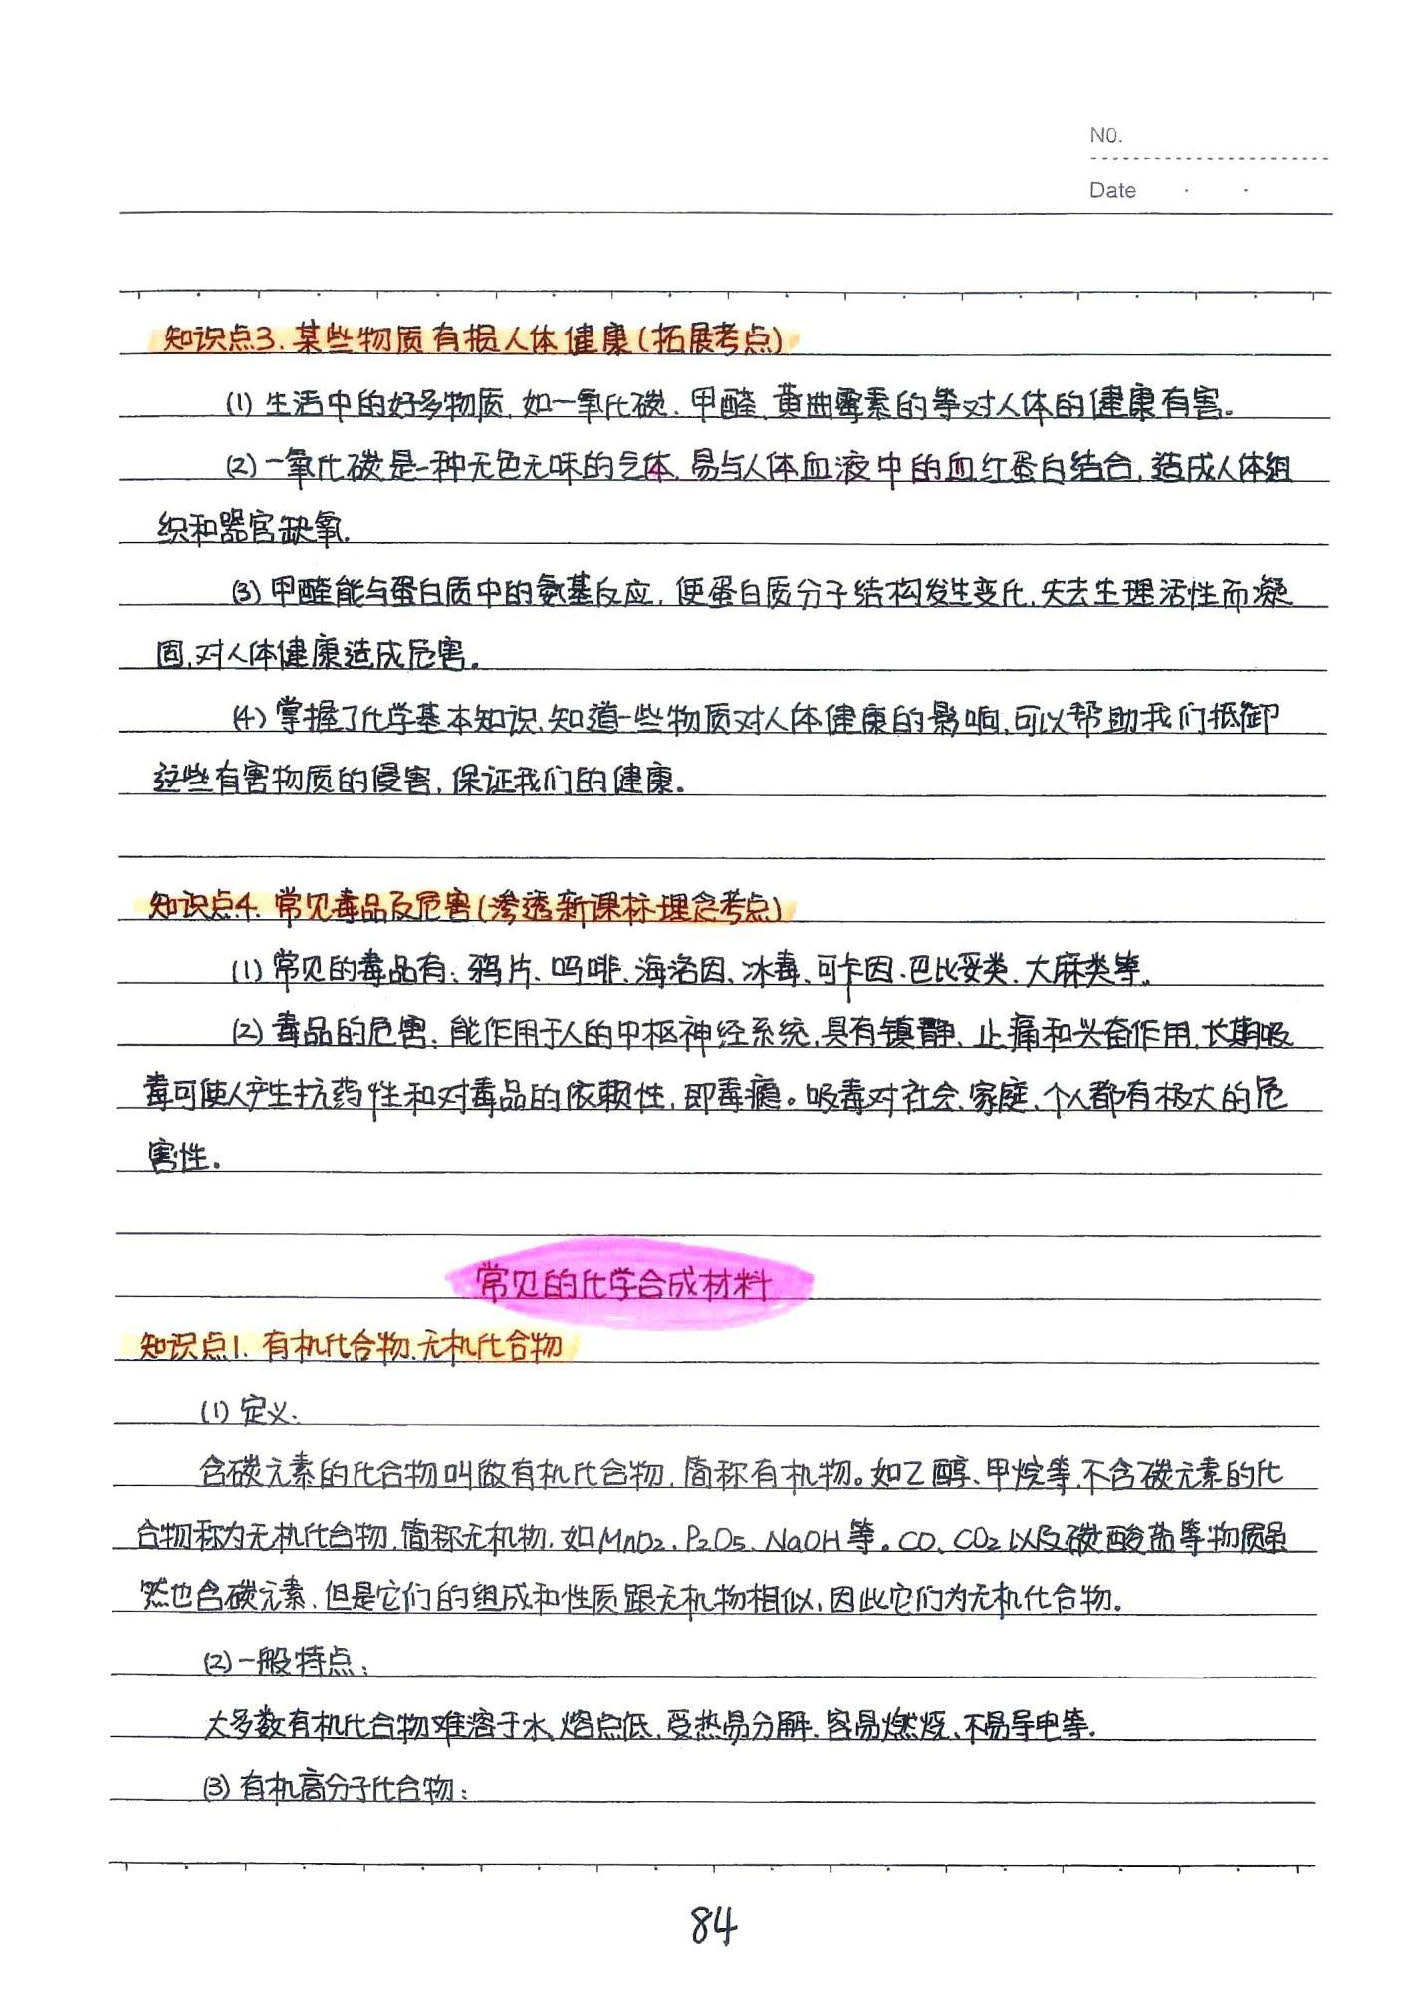 NO.
Date
知识点3.某些物质有损人体健康(拓展考点)
(1)生活中的好多物质,如一氧化碳、甲醛、黄曲霉素的等对人体的健康有害。
(2)一氧化碳是一种无色无味的气体,易与人体血液中的血红蛋白结合,造成人体组
织和器官缺氧.
(3)甲醛能与蛋白质中的氨基反应,使蛋白质分子结构发生变化,失去生理活性而凝
固,对人体健康造成危害。
(4)掌握了化学基本知识,知道一些物质对人体健康的影响,可以帮助我们抵御
这些有害物质的侵害,保证我们的健康。
知识点4.常见毒品及危害(渗透新课标理念考点)
(1)常见的毒品有:鸦片、吗啡、海洛因、冰毒、可卡因、巴比妥类、大麻类等。
(2)毒品的危害:能作用于人的中枢神经系统,具有镇静、止痛和兴奋作用,长期吸
毒可使人产生抗药性和对毒品的依赖性,即毒瘾。吸毒对社会、家庭、个人都有极大的危
害性。
常见的化学合成材料
知识点1.有机化合物、无机化合物
(1)定义:
含碳元素的化合物叫做有机化合物,简称有机物。如乙醇、甲烷等,不含碳元素的化
合物称为无机化合物,简称无机物,如MnO₂、P₂O₅、NaOH等。CO、CO₂以及碳酸盐等物质虽
然也含碳元素,但是它们的组成和性质跟无机物相似,因此它们为无机化合物。
(2)一般特点:
大多数有机化合物难溶于水、熔点低、受热易分解、容易燃烧、不易导电等.
(3)有机高分子化合物:
84